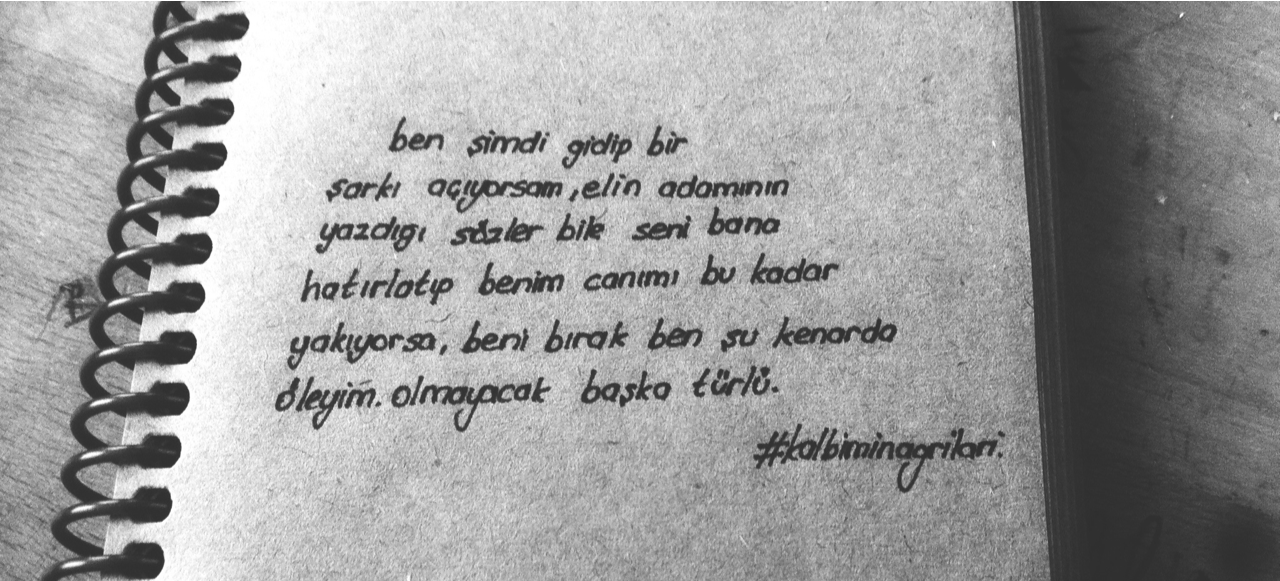 ben şimdi gidip bir
şarkı açıyorsam, elin adamının
yazdıgı sözler bile seni bana
hatırlatıp benim canımı bu kadar
yakıyorsa, beni bırak ben şu kenarda
öleyim. olmayacak başka türlü.
#kalbiminagrilari.